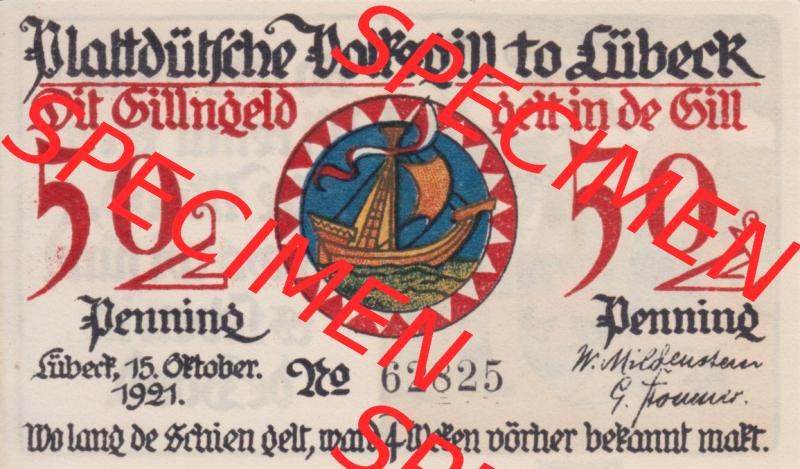 Plattdütsche Volksgill to Lübeck
Dit Gillngeld gelt in de Gill
50 50
Penning Penning
Lübeck, 15. Oktober.
1921.
No 62825
W. Mildenstein
Wo lang de Schien gelt, ward 4 Weken vörher bekannt makt.
SPECIMEN
SPECIMEN
SPECIMEN